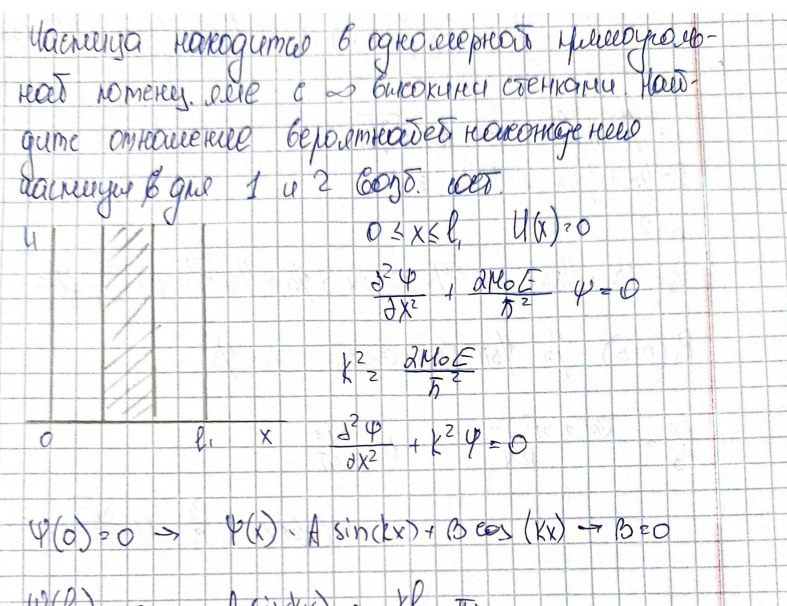 Частица находится в одномерной прямоуголь-
ной потенц. яме с ∞ високими стенками Най-
дите отношение вероятностей нахождения
частицы в для 1 и 2 возб. сост.
U 0 ≤ x ≤ l, U(x)=0
∂²ψ/∂x² + 2m₀E/ħ² ψ = 0
k² = 2m₀E/ħ²
0 l, x ∂²ψ/∂x² + k²ψ = 0
ψ(0)=0 → ψ(x) = A sin(kx) + B cos(kx) → B=0